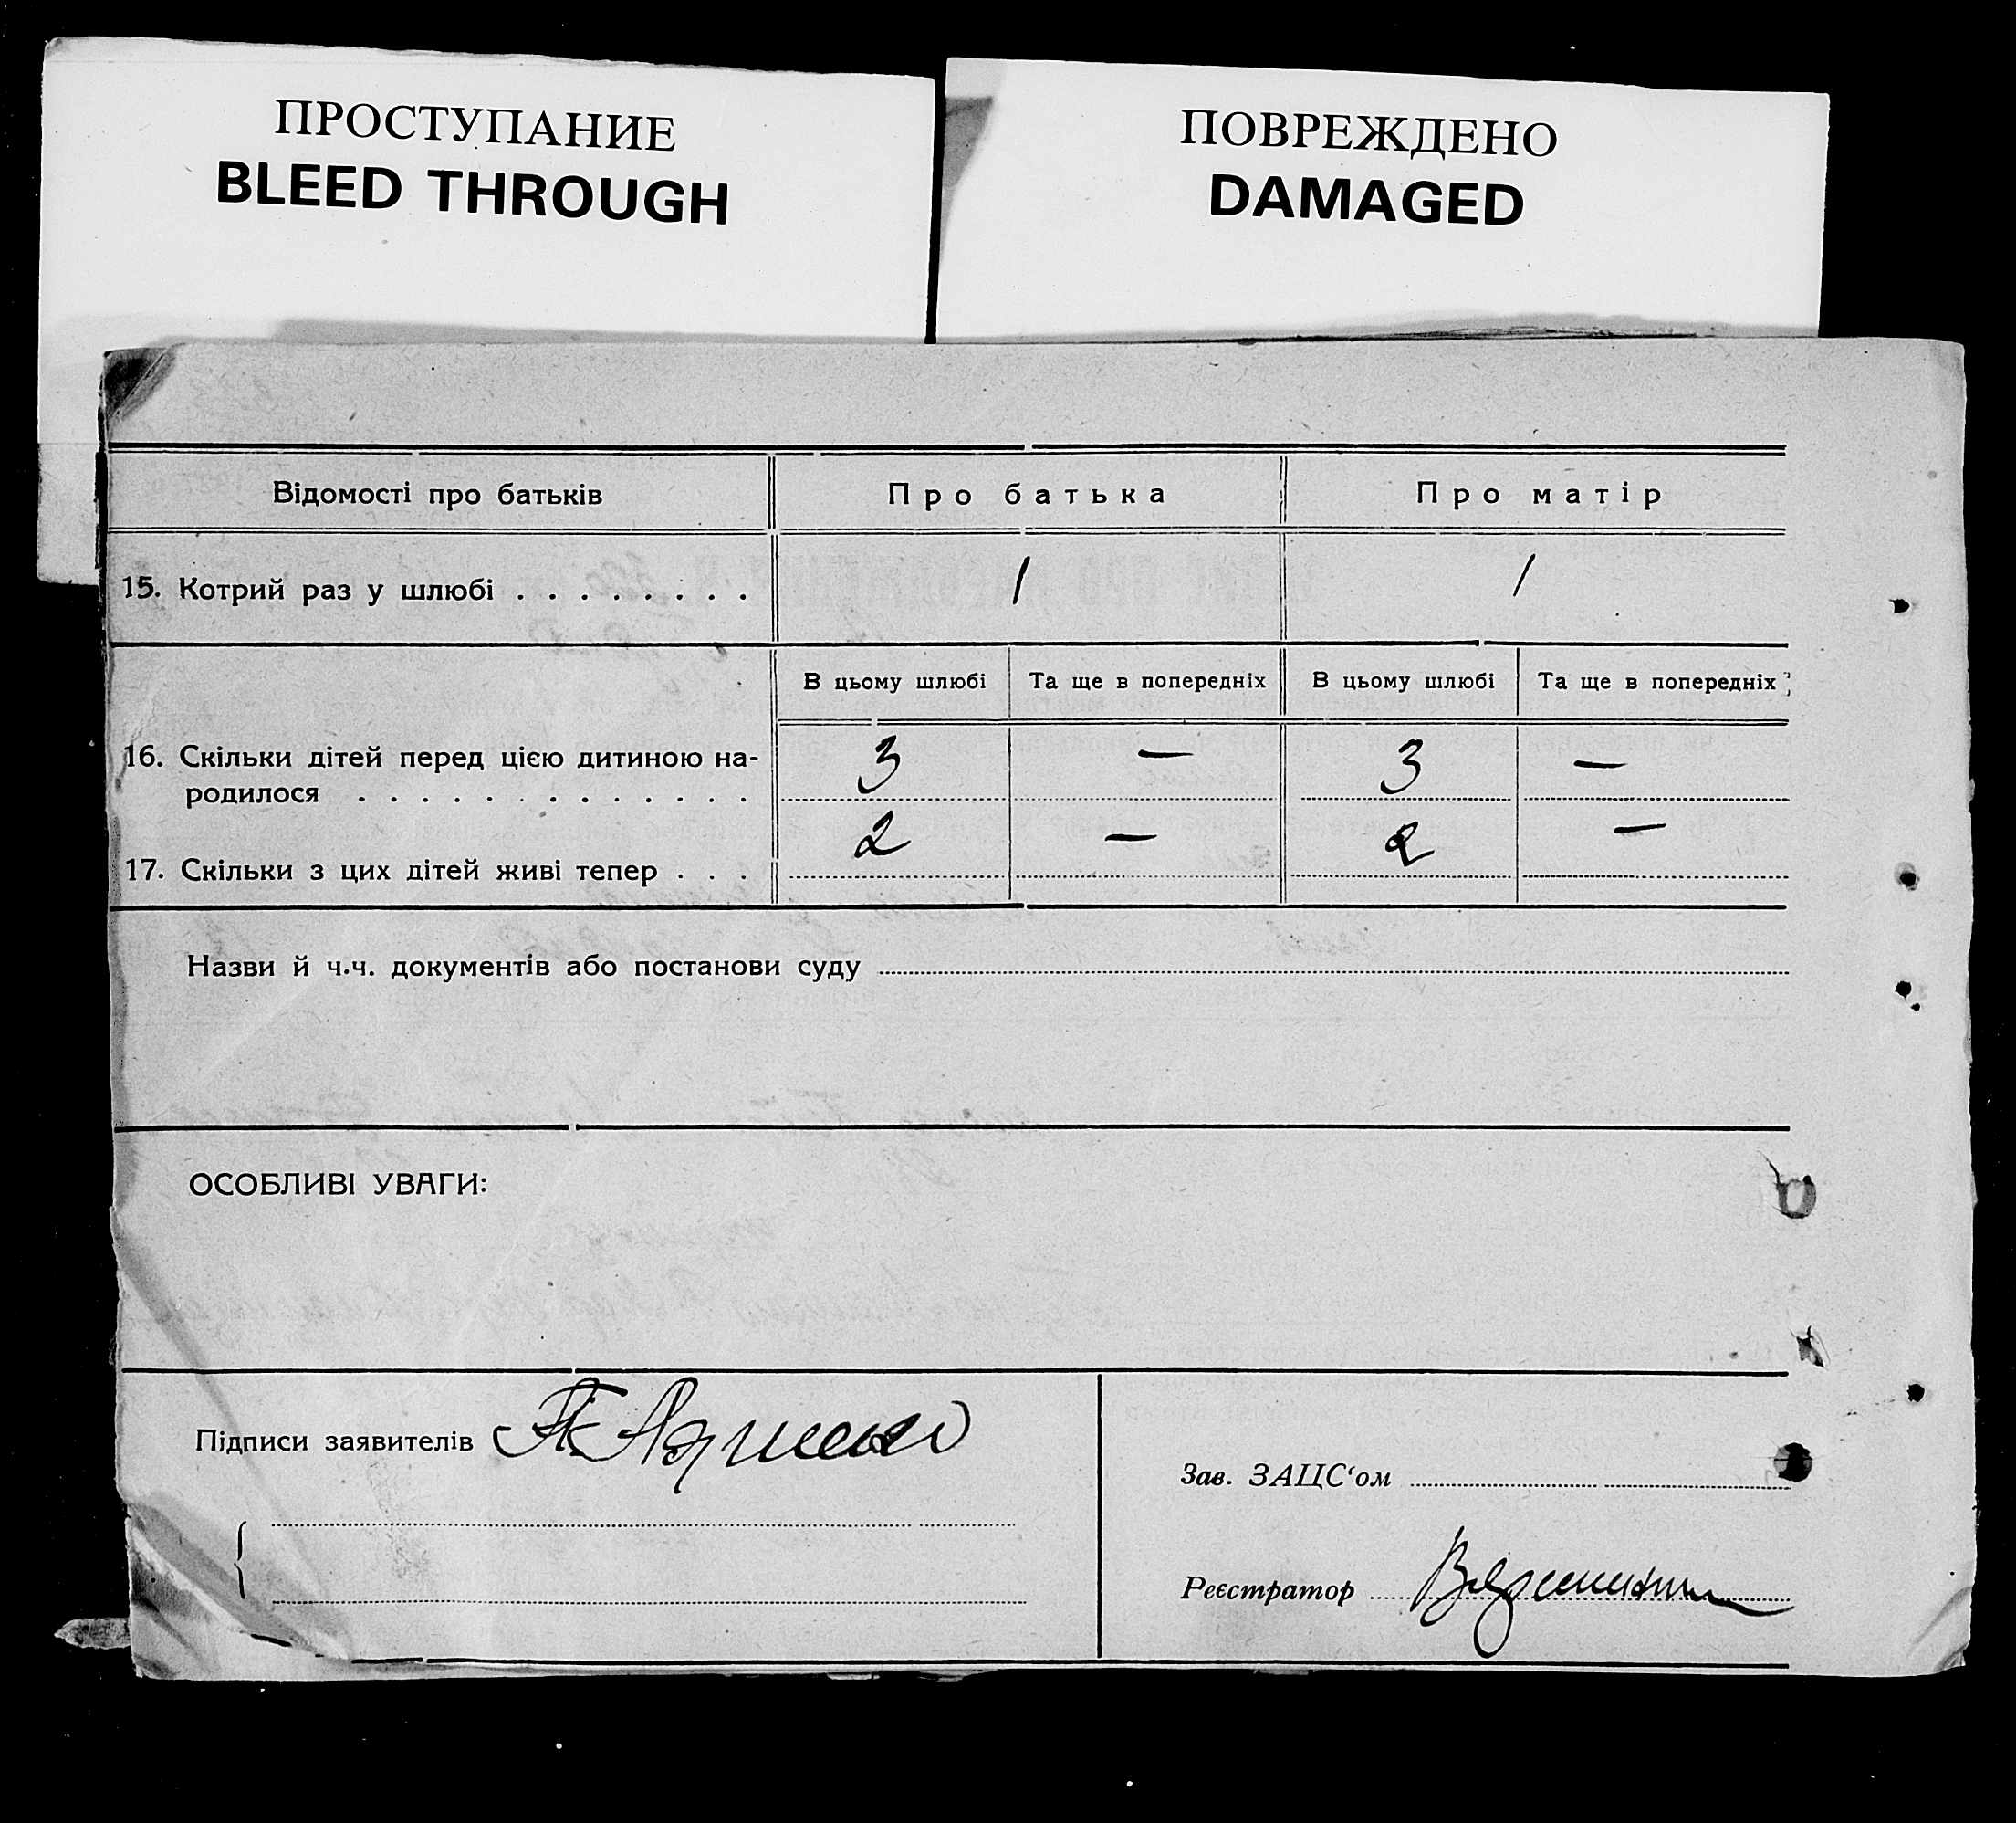 ПРОСТУПАНИЕ
BLEED THROUGH
ПОВРЕЖДЕНО
DAMAGED
Відомості про батьків
Про батька
Про матір
15. Котрий раз у шлюбі . . . . . . . .
1
1
В цьому шлюбі
Та ще в попередніх
В цьому шлюбі
Та ще в попередніх
16. Скільки дітей перед цією дитиною на-
родилося . . . . . . . . . . . . .
3
—
3
—
17. Скільки з цих дітей живі тепер . . .
2
—
2
—
Назви й ч.ч. документів або постанови суду
ОСОБЛИВІ УВАГИ:
Підписи заявителів
Зав. ЗАЦС‘ом
Реєстратор